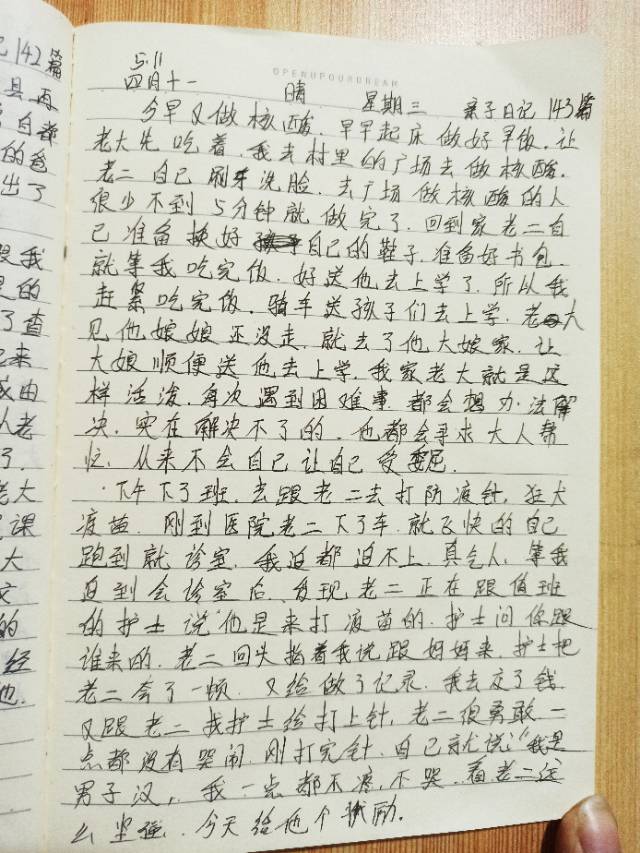 记142篇
县两
的爸
出了
跟我
是的
了查
起来
或由
人老
了.
老大
课
大
文
的
经
他.
OPENUPOURDREAM
5.11
四月十一 晴 星期三 亲子日记143篇
今早又做核酸.早早起床做好早饭.让
老大先吃着.我去村里的广场去做核酸.
老二自己刷牙洗脸.去广场做核酸的人
很少不到5分钟就做完了.回到家老二自
己准备换好自己的鞋子.准备好书包.
就等我吃完饭.好送他去上学了.所以我
赶紧吃完饭.骑车送孩子们去上学.老大
见他娘娘还没走.就去了他大娘家.让
大娘顺便送他去上学.我家老大就是这
样活泼.每次遇到困难事.都会想办法解
决.实在解决不了的.他都会寻求大人帮
忙.从来不会自己让自己受委屈.
下午下了班.去跟老二去打防疫针,狂犬
疫苗.刚到医院老二下了车.就飞快的自己
跑到就诊室.我追都追不上.真气人.等我
追到会诊室后.发现老二正在跟值班
的护士说"他是来打疫苗的.护士问你跟
谁来的.老二回头指着我说跟妈妈来.护士把
老二夸了一顿.又给做了记录.我去交了钱
又跟老二找护士给打上针,老二很勇敢一
点都没有哭闹.刚打完针.自己就说:"我是
男子汉,我一点都不疼,不哭.看老二这
么坚强.今天给他个奖励.